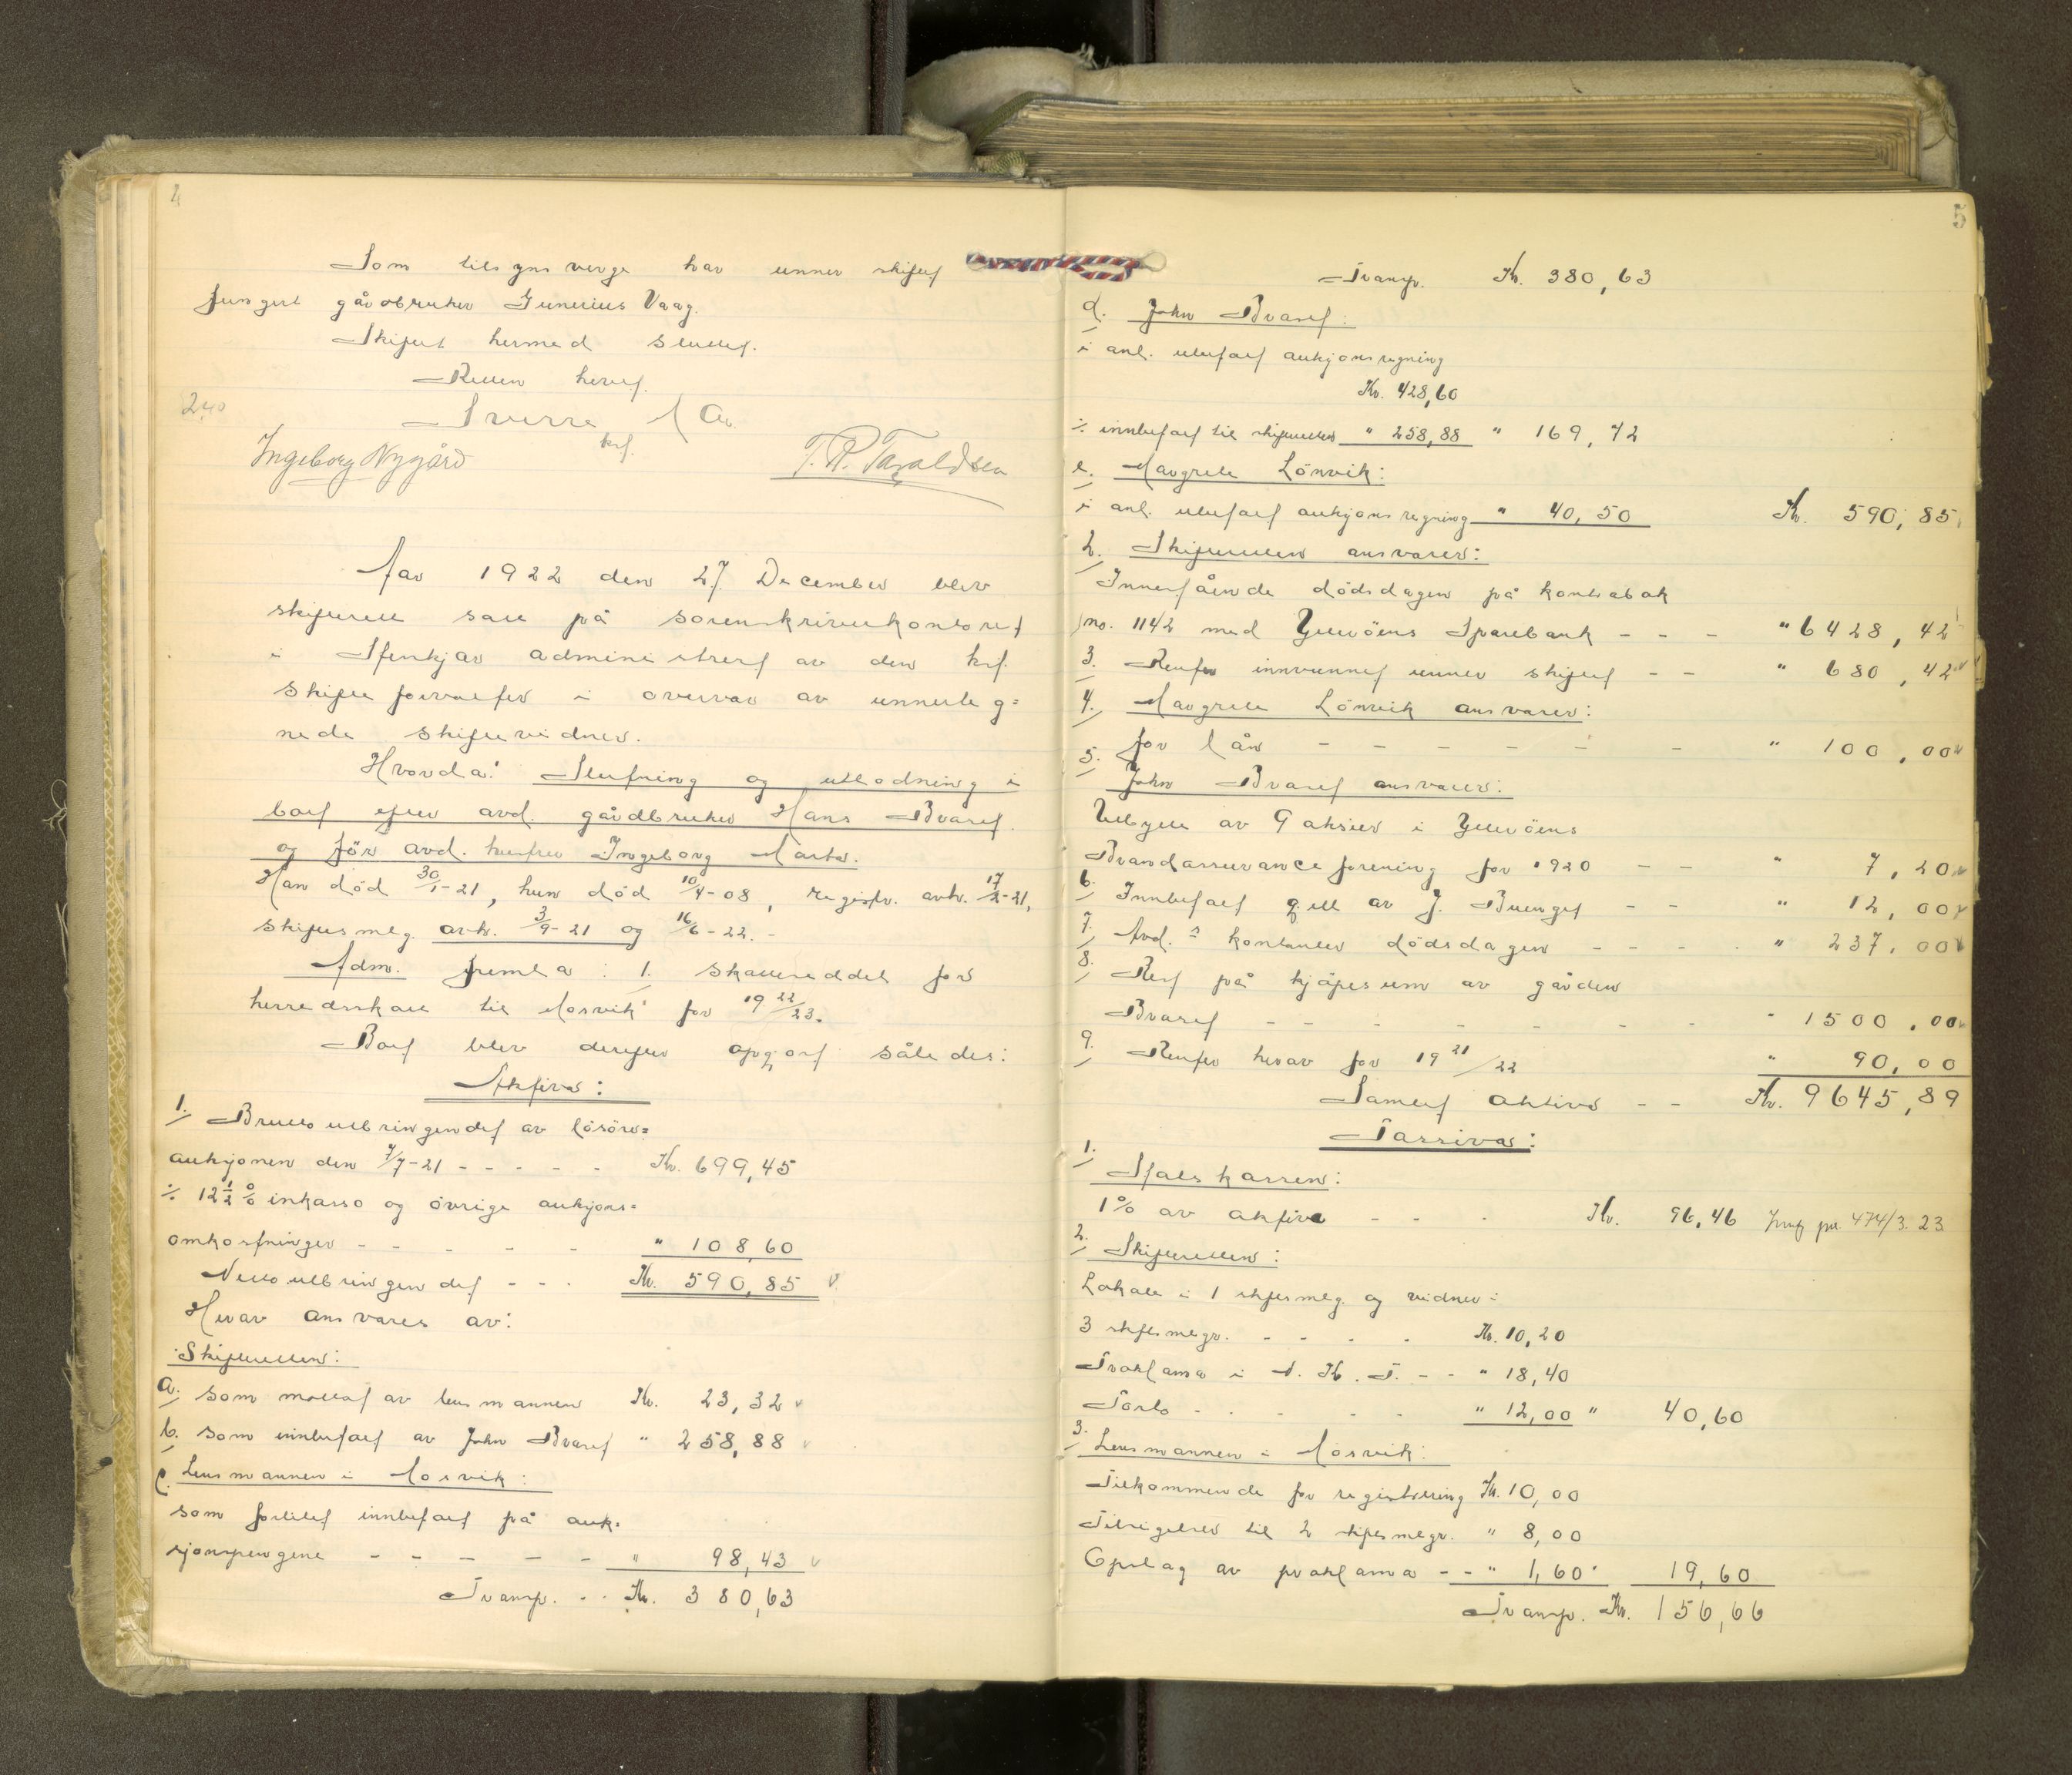 4
Som tilsynsverge har unner skiftet
fungert gårdbruker Gunerius Vaag.
Skiftet hermed sluttet.
Retten hevet.
240
Sverre
kst.
Ingeborg Nygård
T. R. Taraldsen
Aar 1922 den 27. December blev
skifterett satt på sorenskriverkontoret
i Stenkjær administrert av den kst.
skifteforvalter i overvær av unnerteg=
nede skiftevidner.
Hvorda: Slutning og utlodning i
boet efter avd. gårdbruker Hans Bvaret
og før avd. hustru Ingeborg Marta.
Han død 30/1-21, hun død 10/4-08, registr. avh. 17/2-21,
skiftesmlg. avh. 3/9-21 og 16/6-22. -
Adm. fremla: 1. skatteseddel for
herredsskatt til Mosvik for 19 22/23.
Boet blev derefter opgjort således:
Aktiva:
1. Brutto utbringendet av løsøre=
auksjonen den 7/7-21 - - - - - Kr. 699,45
÷ 12 1/2 % inkasso og øvrige auksjons=
omkostninger - - - - - " 108,60
Netto utbringendet - - - Kr. 590,85
Herav ansvares av:
Skifteretten:
a. som mottat av lensmannen Kr. 23,32
b. som innbetalt av John Bvaret " 258,88
c. Lensmannen i Mosvik:
som fortlet innbetalt på auk=
sjonspengene - - - - - " 98,43
Transp. - - Kr. 380,63
5
Transp. Kr. 380,63
d. John Bvaret:
i anl. utestaaende auksjonsregning
Kr. 428,60
÷ innbetalt til skifteretten " 258,88 " 169,72
e. Margrete Lönvik:
i anl. auksjonsregning " 40,50 Kr. 590,85
2. Skifteretten ansvarer:
Innestående dødsdagen på kontrabok
no. 1142 med Ytterøens Sparebank - - - " 6428,42
3. Renter innvunnet unner skiftet - - " 680,42
4. Margrete Lönvik ansvarer:
for lån - - - - - - " 100,00
5. John Bvaret ansvarer:
Utbytte av 9 aksier i Ytterøens
Brandassuranceforening for 1920 - - " 7,20
6. Innbetalt gjeld av J. - - " 12,00
7. Avd.s kontanter dødsdagen - - - - " 237,00
8. Rest på kjøpesum av gården
Bvaret - - - - - - - - " 1500,00
9. Renter herav for 19 21/22 " 90,00
Samlet aktiva - - Kr. 9645,89
Passiva:
1. Statskassen:
1% av aktiva - - - Kr. 96,46
2. Skifteretten:
Lokale i 1 skftesmlg. og vidner i
3 skftesmlgr. - - - - Kr. 10,20
Proklama i N. K. T. - - " 18,40
Porto - - - - - " 12,00 " 40,60
3. Lensmannen i Mosvik:
Tilkommende for registrering Kr. 10,00
Tilsigelser til 2 skiftesmlgr. " 8,00
Opslag av proklama - - " 1,60 " 19,60
Transp. Kr. 156,66